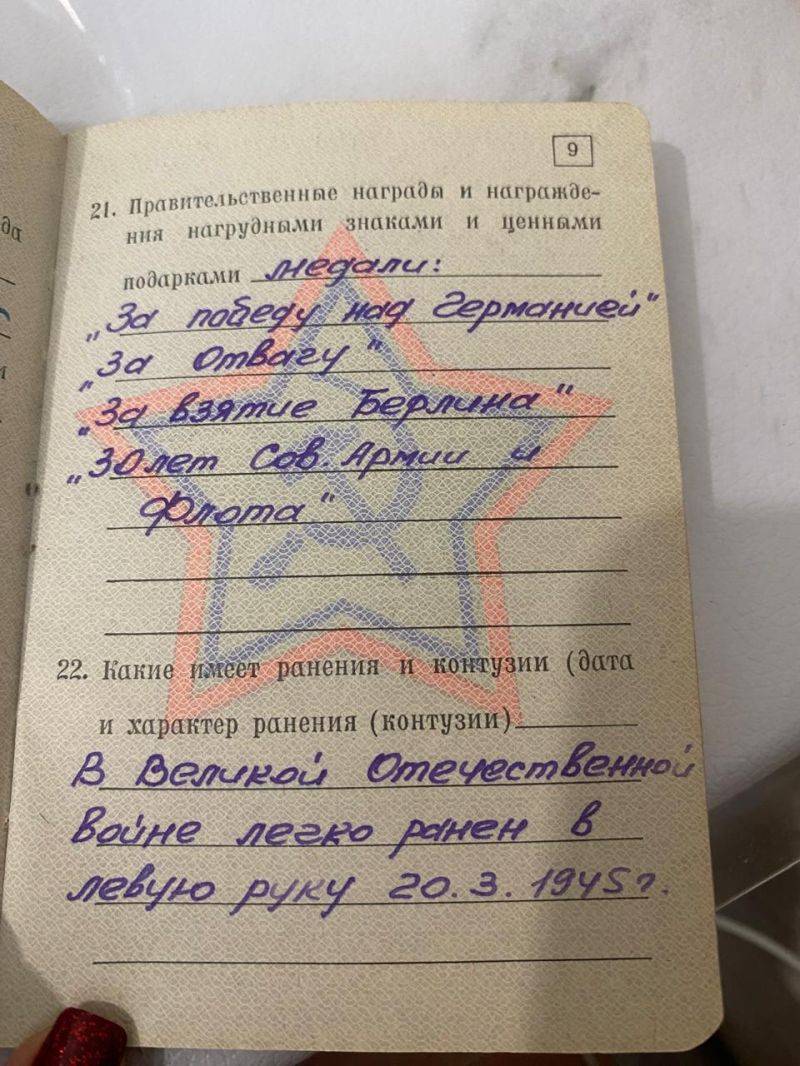 9
21. Правительственные награды и награжде-
ния нагрудными знаками и ценными
подарками медали:
„За победу над Германией"
„За Отвагу"
„За взятие Берлина"
„30 лет Сов. Армии и
Флота"
22. Какие имеет ранения и контузии (дата
и характер ранения (контузии)
В Великой Отечественной
войне легко ранен в
левую руку 20.3.1945г.
да